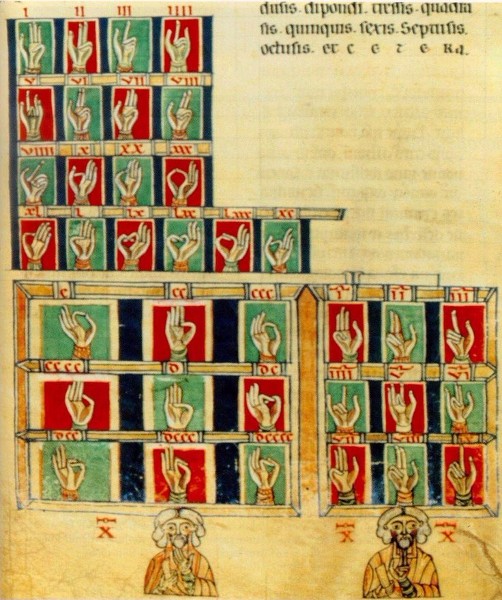 dusis. dipondi. tressis. quadra
sis. quinquis. sexis. Septusis.
octusis. et c e t e ra.
I II III IIII
V VI VII VIII
VIIII X XX XXX
XL L LX LXX LXXX XC
C CC CCC
CCCC D DC
DCC DCCC DCCCC
I II III
IIII V VI
VII VIII IX
X
X X